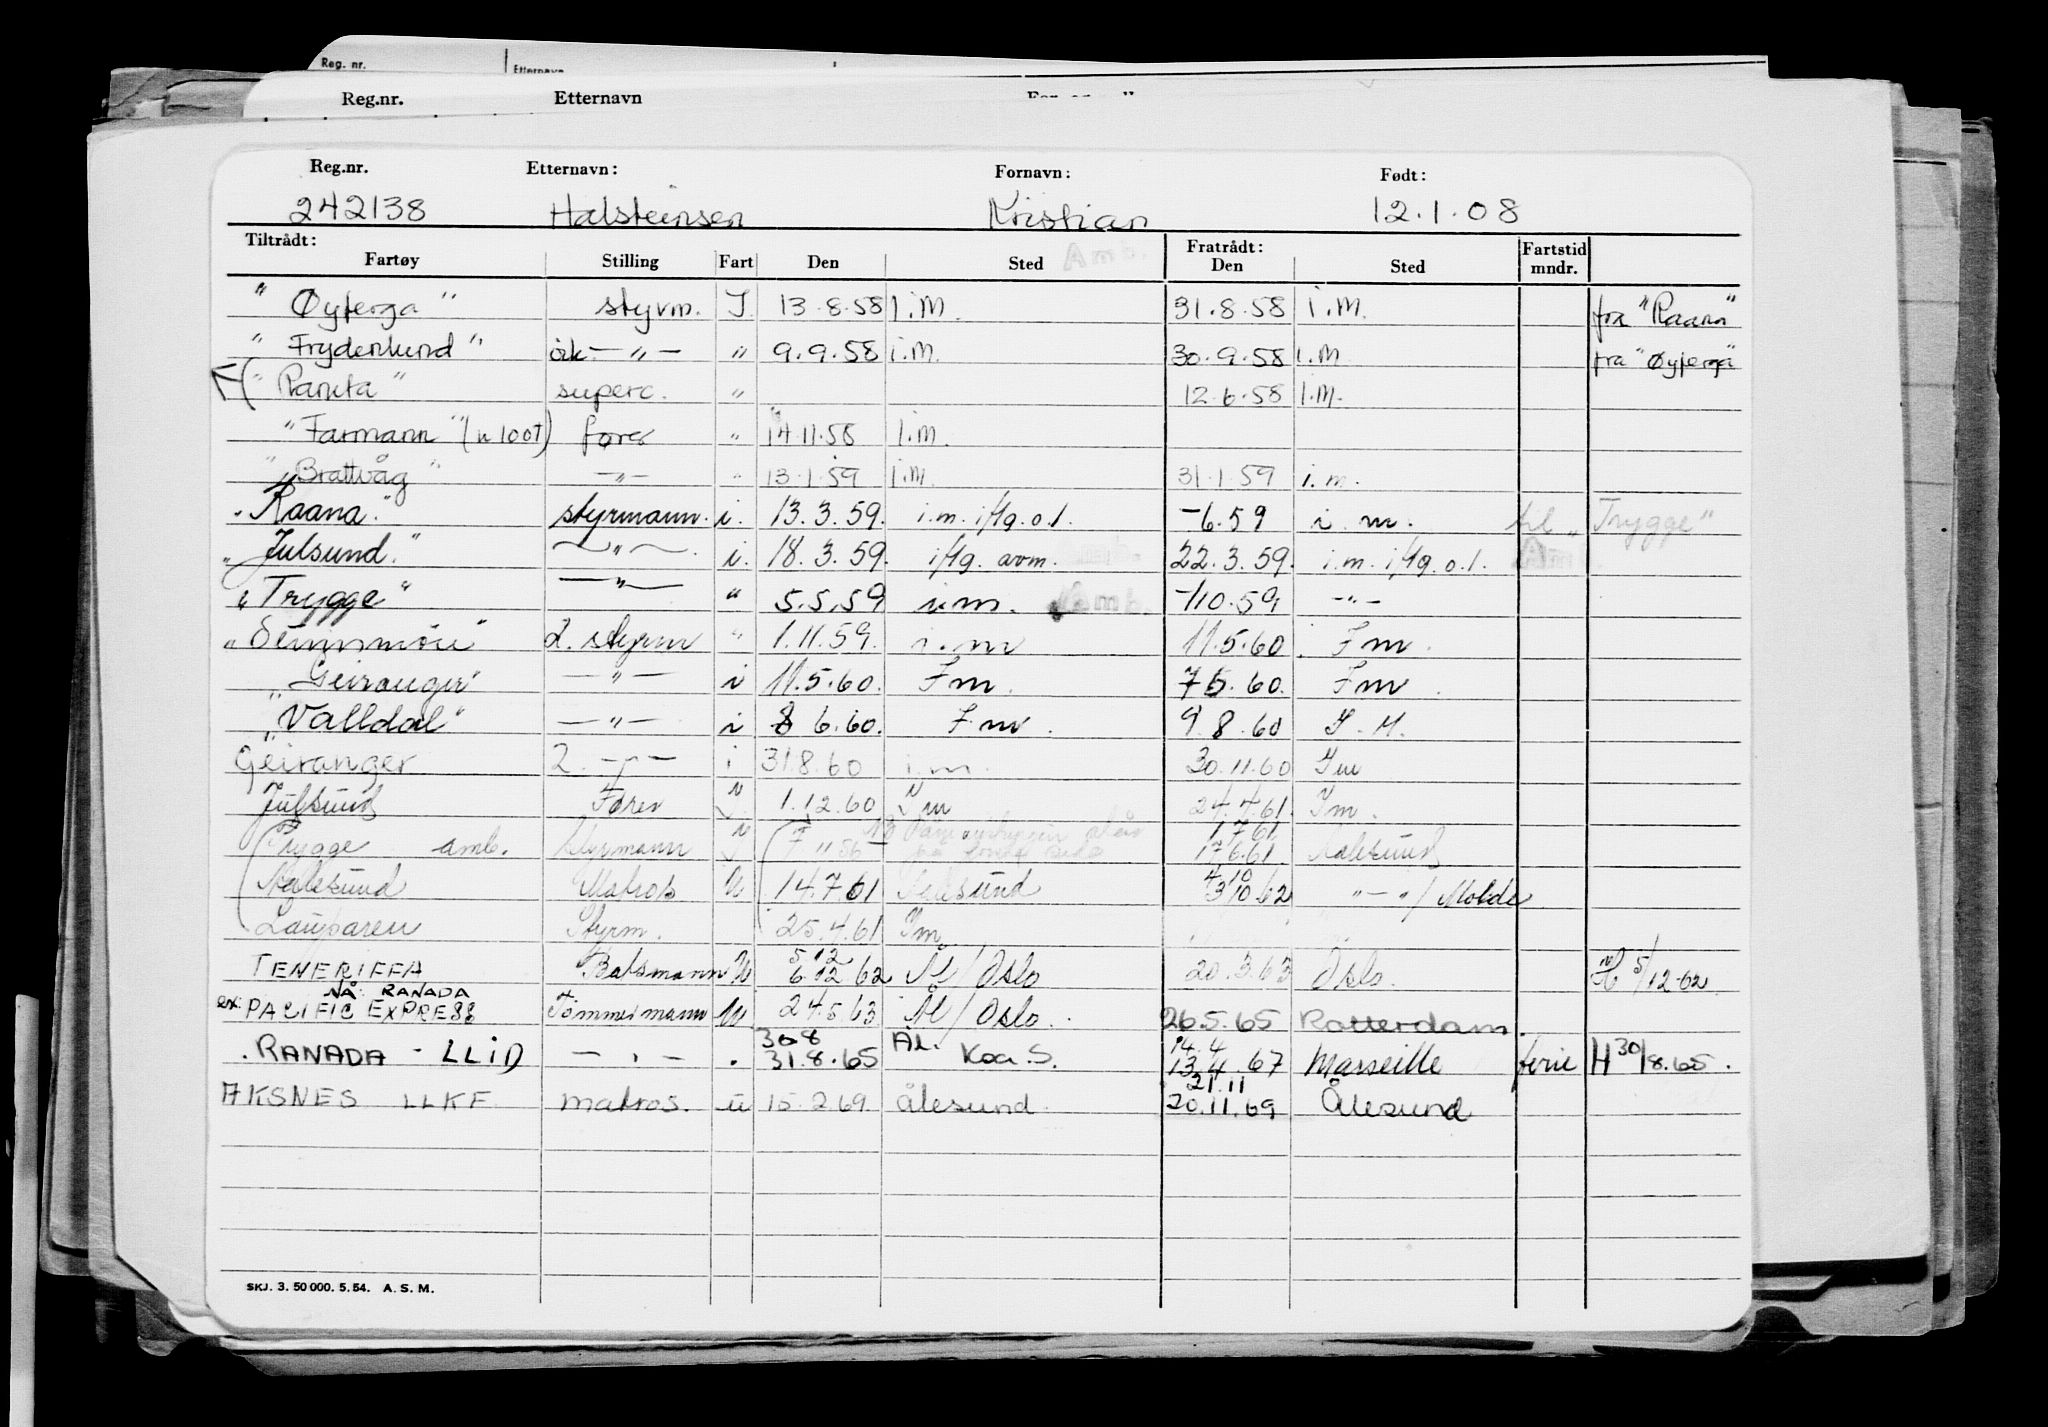 Reg. nr. Etternavn
Reg.nr. Etternavn
Reg.nr. Etternavn: Fornavn: Født:
242138 Halsteinsen Kristian 12.1.08
Tiltrådt: Fratrådt: Fartstid
Fartøy Stilling Fart Den Sted Amb. Den Sted mndr.
"Øyterga" styrm. I 13.8.58 I.M. 31.8.58 I.M. fra "Raana"
"Frydenlund" -"- " 9.9.58 i.M. 30.9.58 I.M fra "Øyterga"
"Ranita" superc. " 12.6.58 I.M.
"Farmann" (u 100T) fører " 14.11.58 I.m.
"Brattvåg" -"- " 13.1.59 I.M. 31.1.59 i.m.
"Raana" styrmann. i. 13.3.59. i.m. i/tg.o.l. -6.59 i.m. til "Trygge"
"Julsund." -"- i. 18.3.59. i/tg. avm. 22.3.59. i.m. i/tg.o.l.
"Trygge" -"- " 5.5.59 i.m. -/10.59 -"-
"Sunnmøre" 2. styrm " 1.11.59. i.m 11.5.60 I m.
"Geiranger" -"- i 11.5.60. I m. 7 5.60. I m.
"Valldal" -"- i 8 6.60. I m. 9.8.60 I.M.
Geiranger 2. -"- i 31.8.60 i.m. 30.11.60 Im
Julsund Fører I 1.12.60 Im 24.4.61. Im.
1.7.61
Trygge amb. Styrmann I 17.6.61 Aalesund
4/10
Aalesund Matros U 14.7.61 Aalesund 3/10.62 "-"/Molde
Lauparen Styrm. 25.4.61 Im
5.12
TENERIFFA Båtsmann U 6.12.62 Ål/Oslo 20.3.63 Oslo. H 5/12-62
NÅ: RANADA
ex: PACIFIC EXPRESS Tømmermann U 24.5.63 Ål/Oslo. 26.5.65 Rotterdam.
30.8 Ål. 14.4
RANADA - LLID -"- . 31.8.65 Koa.S. 13.4.67 Marseille ferie H 30/8.65.
21.11
AKSNES LLKF matros. u 15.2.69 Ålesund. 20.11.69 Ålesund
SKJ. 3. 50 000. 5. 54. A. S. M.